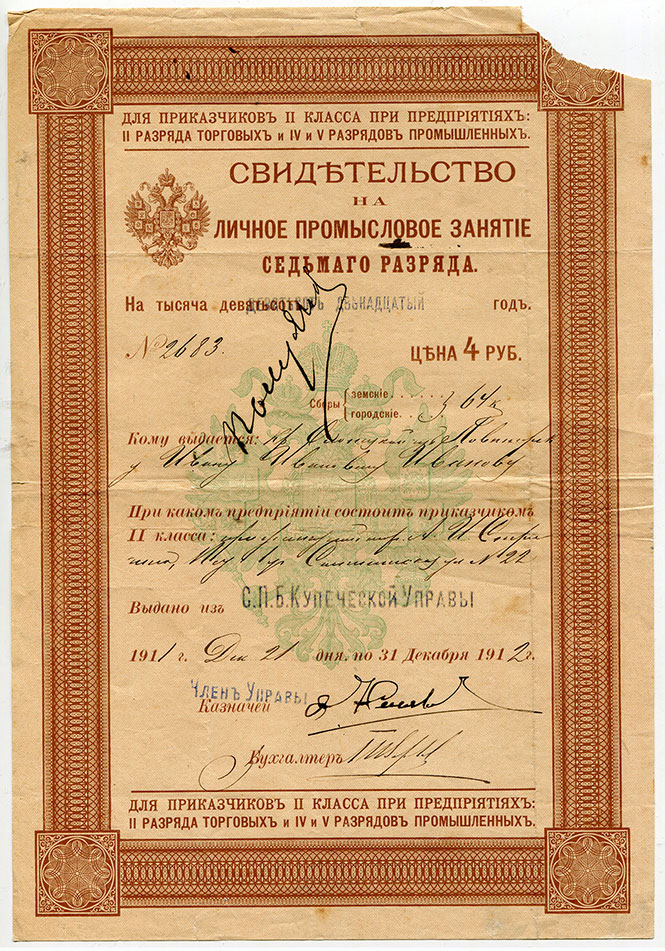 ДЛЯ ПРИКАЗЧИКОВЪ II КЛАССА ПРИ ПРЕДПРІЯТІЯХЪ:
II РАЗРЯДА ТОРГОВЫХЪ и IV и V РАЗРЯДОВЪ ПРОМЫШЛЕННЫХЪ.
СВИДѢТЕЛЬСТВО
НА
ЛИЧНОЕ ПРОМЫСЛОВОЕ ЗАНЯТІЕ
СЕДЬМАГО РАЗРЯДА.
На тысяча девятьсотъ двѣнадцатый годъ.
№ 2683.
ЦѢНА 4 РУБ.
Сборы { земскіе
городскіе 3 64 к
Кому выдается: кр
у Ивану Ивановичу Иванову
При какомъ предпріятіи состоитъ приказчикомъ
II класса: при А. И.
№ 22
Выдано изъ С.П.Б. Купеческой Управы
1911 г. Дек 21 дня. по 31 Декабря 1912 г.
Членъ Управы
Казначей
Бухгалтеръ
ДЛЯ ПРИКАЗЧИКОВЪ II КЛАССА ПРИ ПРЕДПРІЯТІЯХЪ:
II РАЗРЯДА ТОРГОВЫХЪ и IV и V РАЗРЯДОВЪ ПРОМЫШЛЕННЫХЪ.